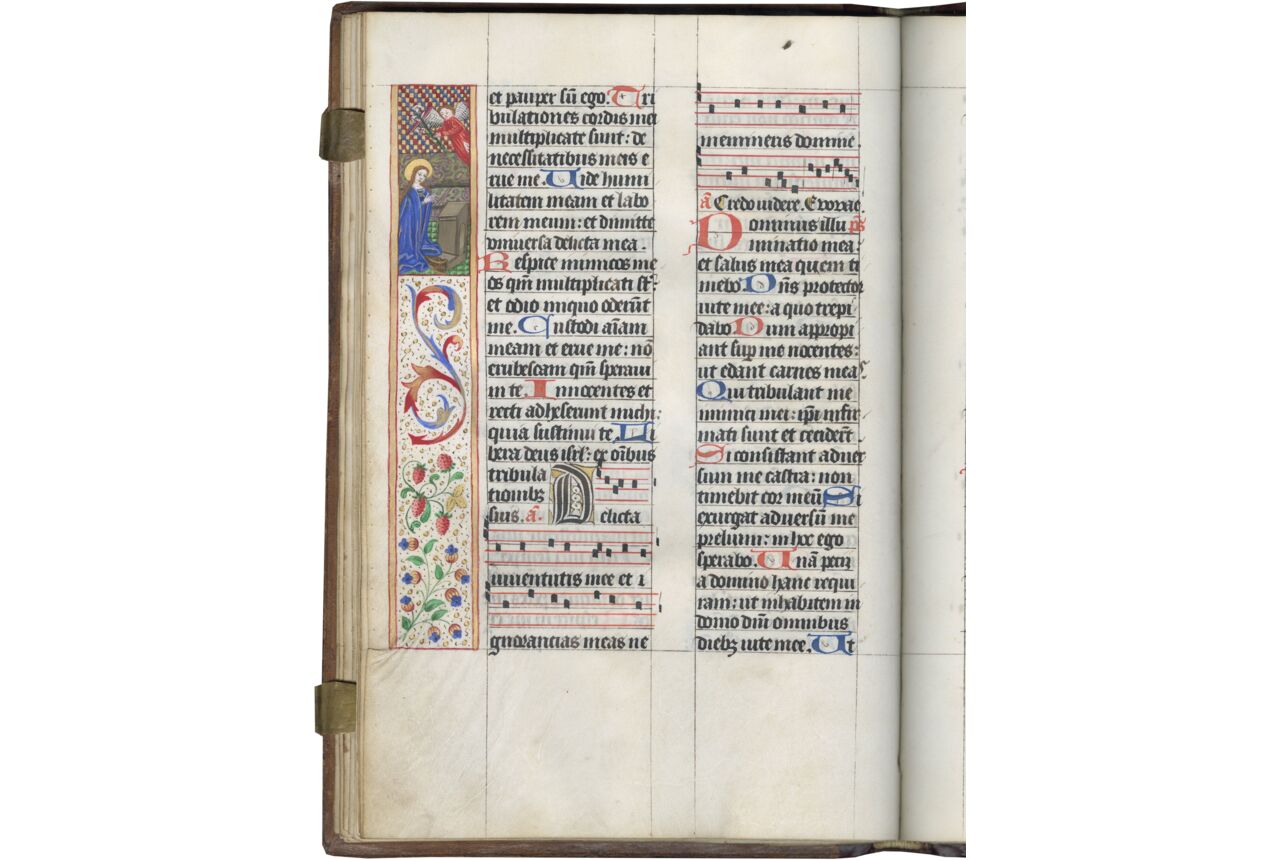 et pauper sū ego. Tri
bulationes cordis mei
multiplicate sunt: de
necessitatibus meis e
rue me. Uide humi
litatem meam et labo
rem meum: et dimitte
vniuersa delicta mea.
Respice inimicos me
os qm̄ multiplicati st̄:
et odio iniquo oderūt
me. Custodi aīam
meam et erue me: nō
erubescam qm̄ speraui
in te. Innocentes et
recti adheserunt michi:
quia sustinui te. Li
bera deus isrl̄: ex oībus
tribula
tionibꝫ
suis. a̅. Delicta
iuuentutis mee et i
gnorancias meas ne
memineris domine.
a̅ Credo uidere. Evovae
Dominus illu ps̄
minatio mea:
et salus mea quem ti
mebo. Dn̄s protector
uite mee: a quo trepi
dabo. Dum appropi
ant sup̄ me nocentes:
ut edant carnes meas
Qui tribulant me
inimici mei: ip̄i infir
mati sunt et ceciderūt.
Si consistant aduer
sum me castra: non
timebit cor meū. Si
exurgat aduersū me
prelium: in hoc ego
sperabo. Unā pecij
a domino hanc requi
ram: ut inhabitem in
domo dn̄i omnibus
diebꝫ uite mee. Ut